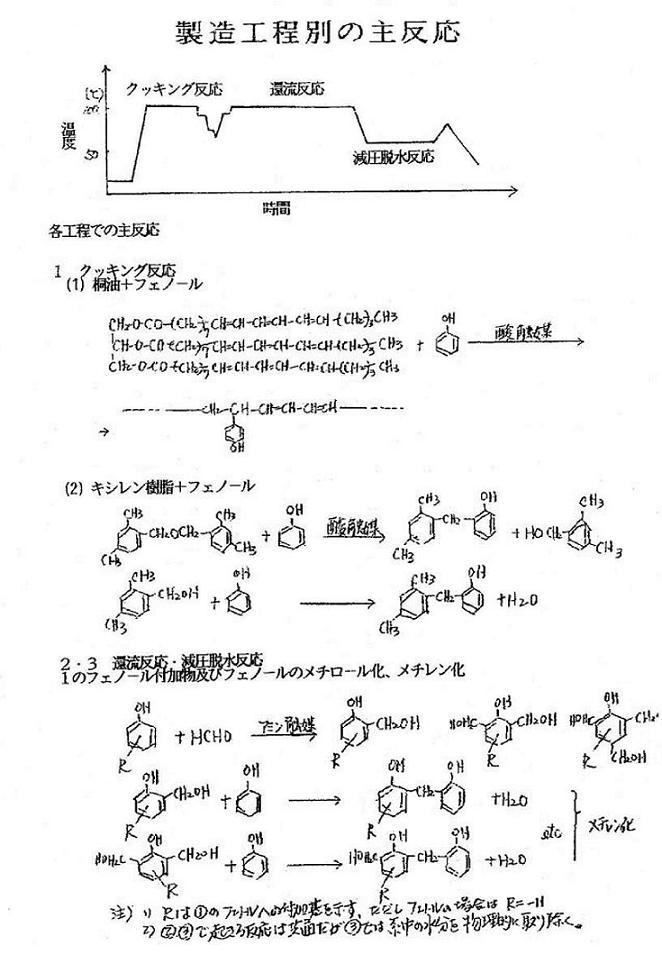 製造工程別の主反応
(℃)
クッキング反応
還流反応
温度
50
減圧脱水反応
時間
各工程での主反応
1 クッキング反応
(1) 桐油+フェノール
CH2-O-CO-(CH2)7 CH=CH-CH=CH-CH=CH-(CH2)3CH3
CH-O-CO-(CH2)7 CH=CH-CH=CH-CH=CH-(CH2)3 CH3
CH2-O-CO-(CH2)7 CH=CH-CH=CH-CH=CH(CH2)3 CH3
+
OH
酸触媒
CH2-CH-CH=CH-CH=CH
OH
(2) キシレン樹脂+フェノール
CH3 CH2OCH2 CH3 CH3 CH3 + OH
酸触媒
CH3 CH2 OH CH3 + HOCH2 CH3 CH3
CH3 CH2OH CH3 + OH → CH3 CH2 OH CH3 +H2O
2・3 還流反応・減圧脱水反応
1のフェノール付加物及びフェノールのメチロール化、メチレン化
OH R + HCHO
アミン触媒
OH CH2OH R
HOH2C OH CH2OH R
HOH2C OH CH2 CH2OH R
OH CH2OH R + OH → OH CH2 OH R +H2O
etc メチレン化
HOH2C OH CH2OH R + OH → HOH2C OH CH2 OH R +H2O
注) 1) Rは①のフェノールへの付加基を示す、ただしフェノールの場合は R=-H
2) ②③で起こる反応は だが③では系中の水分を物理的に取り除く。